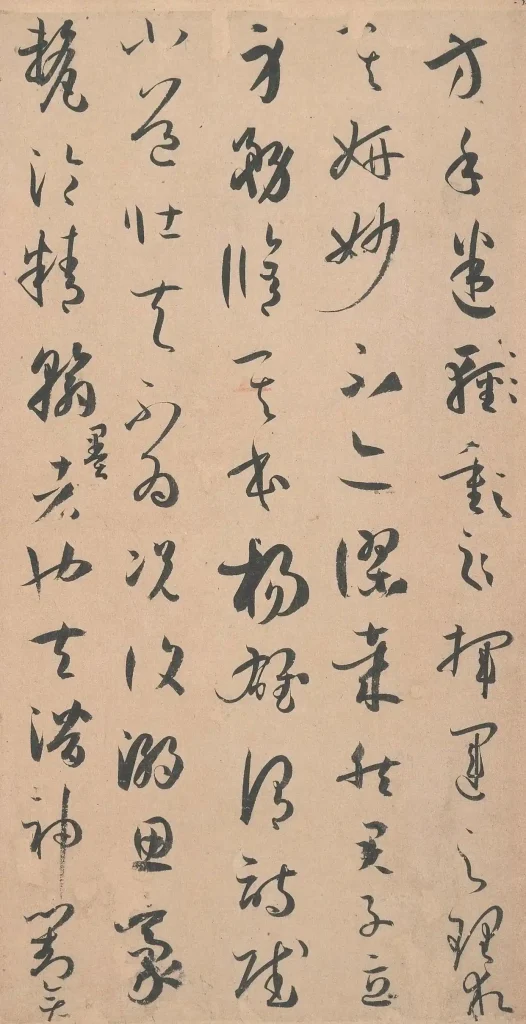 方手迷揮運之理求
其妍妙不亦謬哉然君子立
身務脩其本楊雄謂詩賦
小道壯夫不為況復溺思豪
釐淪精翰墨者也夫潛神對弈